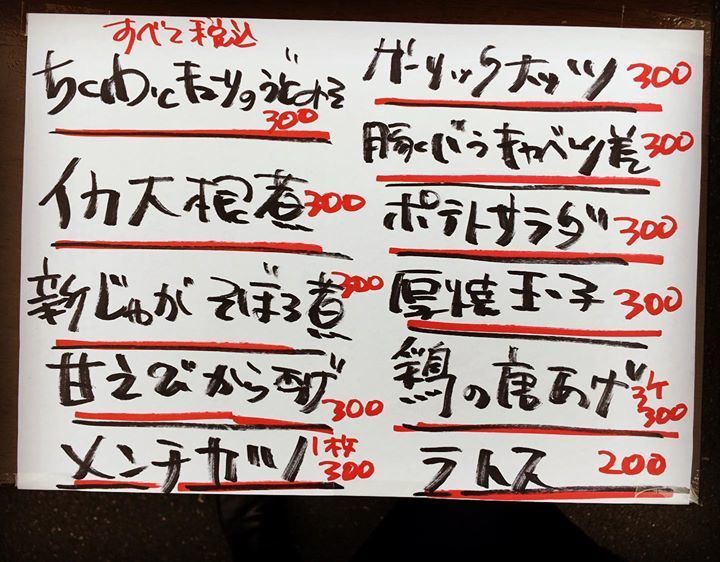 すべて税込
ちくわ キューリの
300
イカ大根煮 300
新じゃがそぼろ煮 300
甘えびから揚げ 300
メンチカツ 1枚 300
ガーリックナッツ 300
豚ばらキャベツ 300
ポテトサラダ 300
厚焼玉子 300
鶏の唐あげ 3ケ 300
200